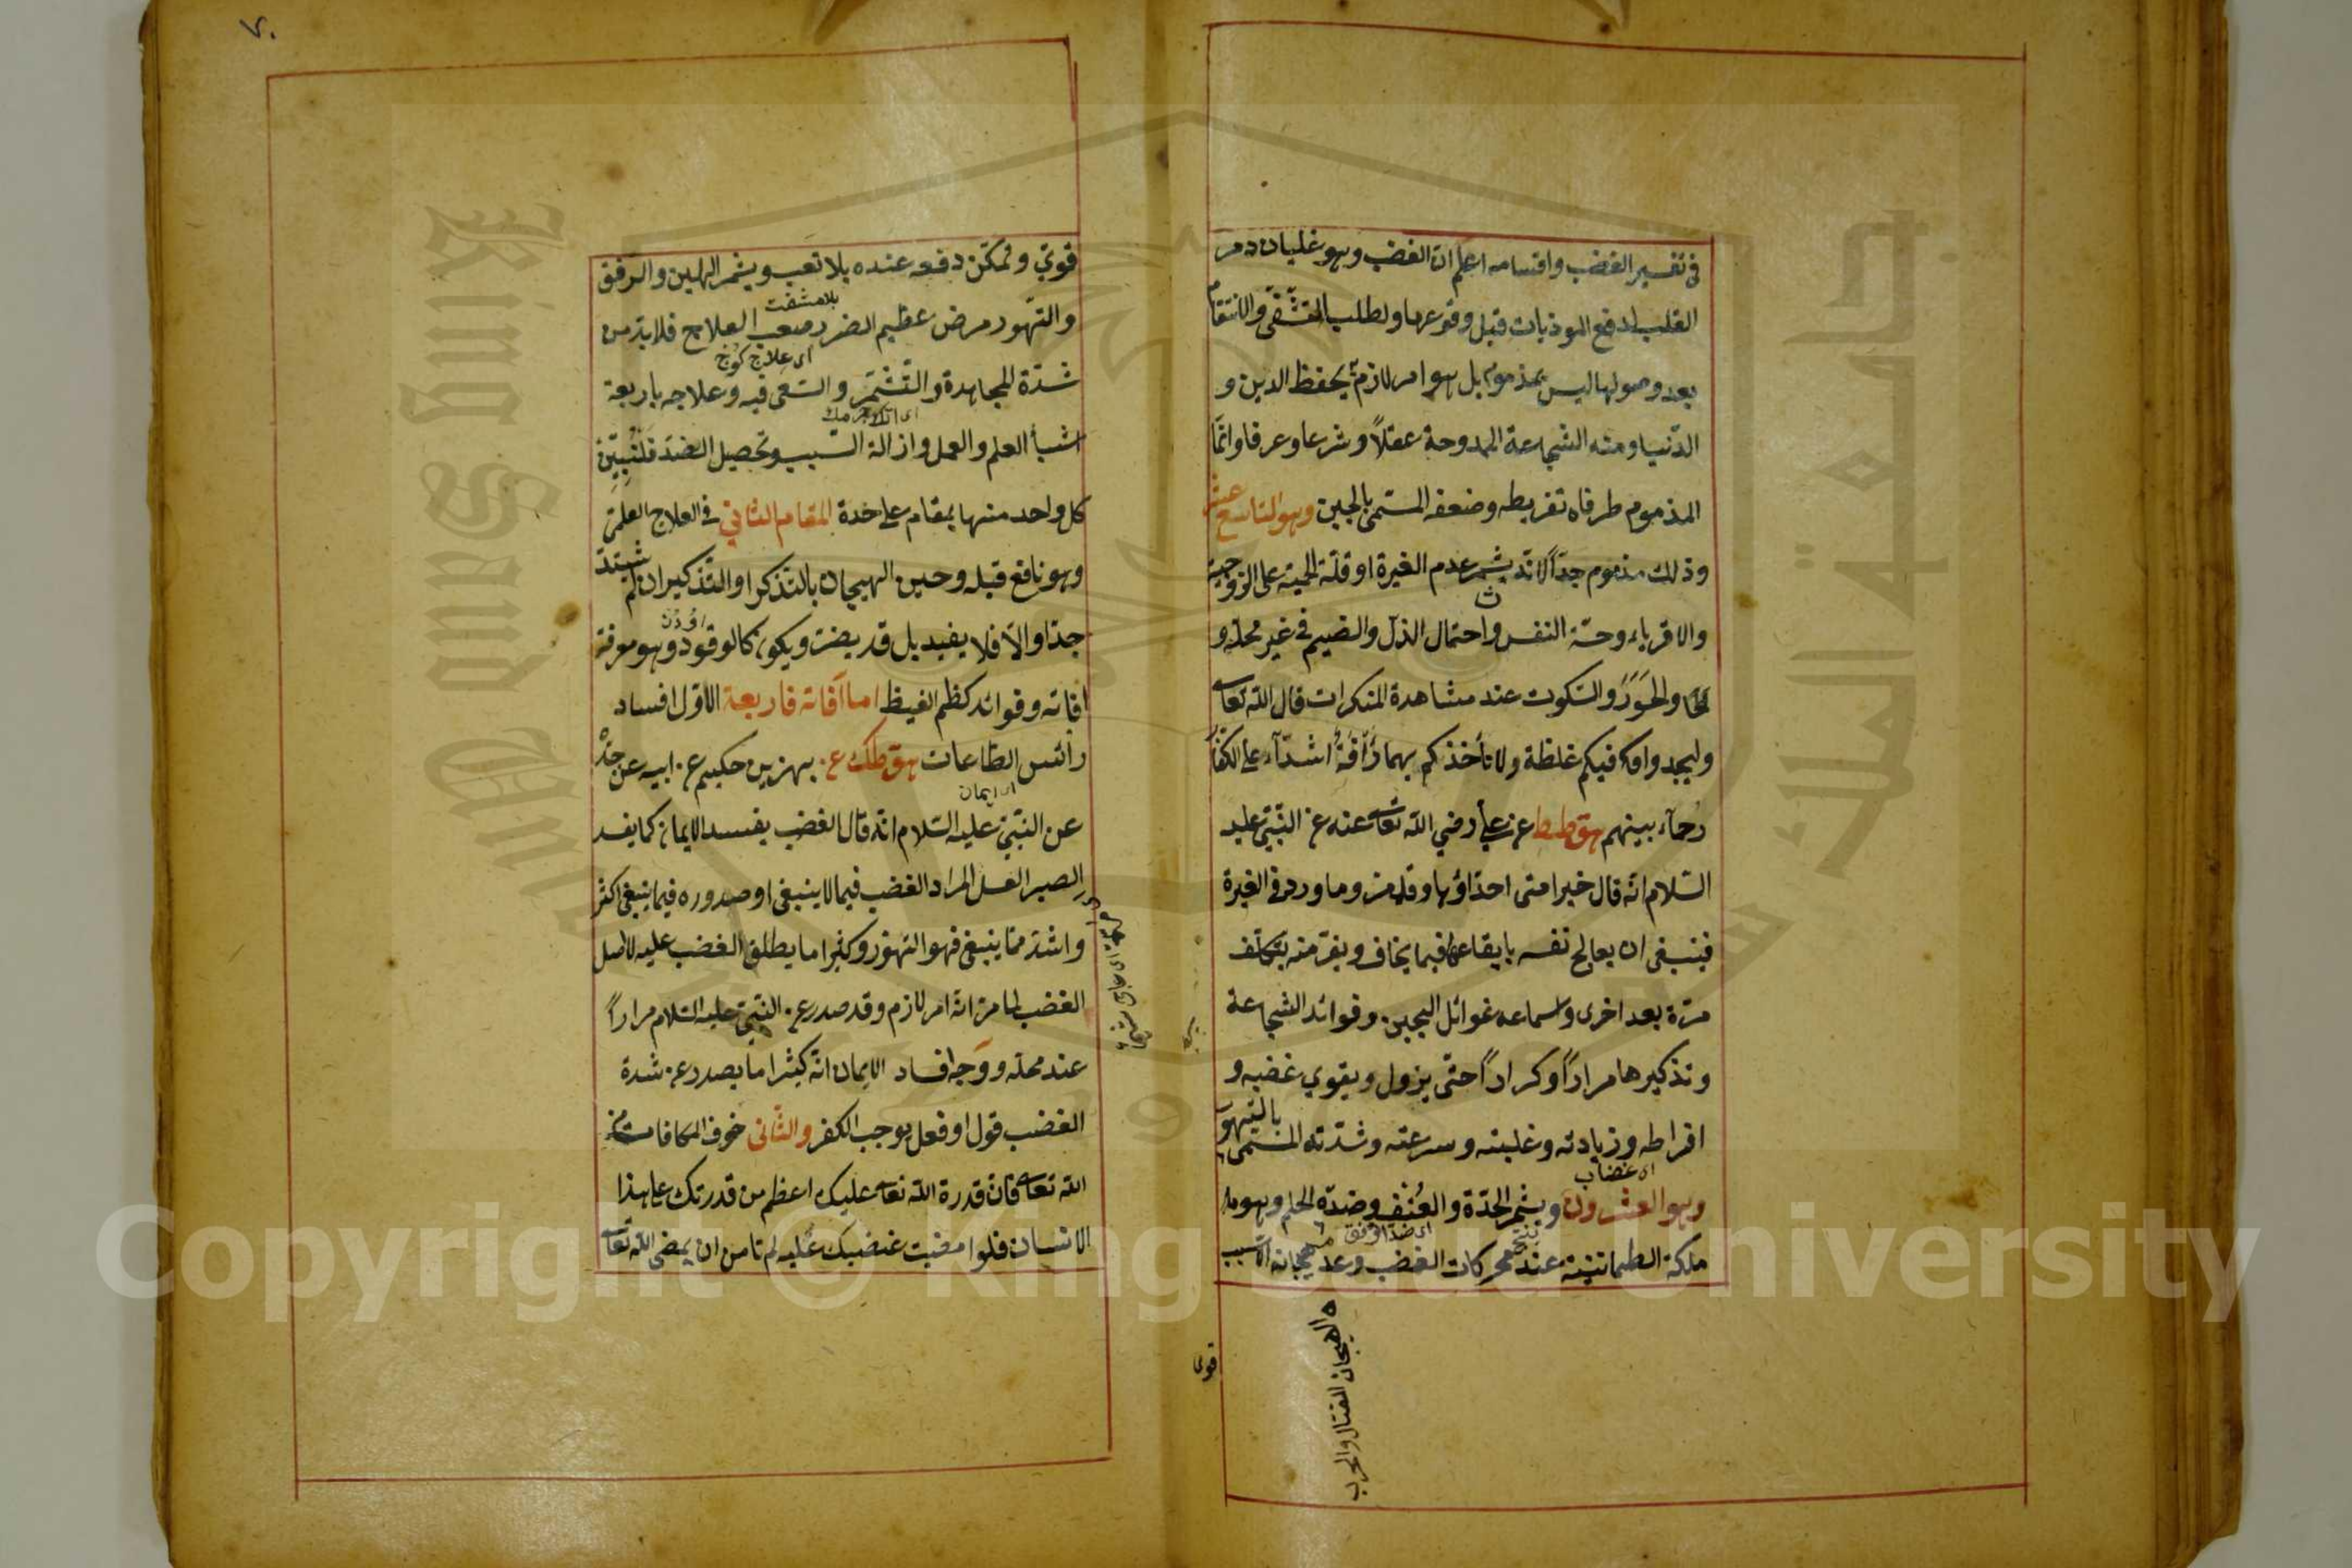 فى تفسير الغضب واقسامه اعلم ان الغضب وهو غليان دم
القلب لدفع الموذيات قبل وقوعها ولطلب التشفّى والانتقام
بعد وصولها ليس بمذموم بل هو امر لازم به يحفظ الدين و
الدّنيا ومنه الشجاعة الممدوحة عقلاً وشرعا وعرفا وانّما
المذموم طرفاه تفريطه وضعفه المسمّى بالجبن وهو التاسع عشر
وذلك مذموم جدّاً لانّه يثمر عدم الغيرة او قلّة الحمية على الزوجة
والاقرباء وخسّة النفس واحتمال الذلّ والضيم فى غير محلّه و
والخَوَرَ والسّكوت عند مشاهدة المنكرات قال اللّه تعالى
وليجدوا فيكم غلظة ولا تأخذكم بهما رَأفَةٌ اشدّآء على الكفّار
رُحمآء بينهم هق طط عن على رضي اللّه تعالى عنه عن النّبيّ عليه
السّلام انّه قال خير امتى احدّاؤها وقد مر وما ورد فى الغيرة
فينبغى ان يعالج نفسه بايقاعها فيما يخاف ويفرّ منه بتكلّف
مرّة بعد اخرى واسماعه غوائل الجبن وفوائد الشجاعة
وتذكيرها مراراً وكراراً حتّى يزول ويقوي غضبه و
افراطه وزيادته وغلبته وسرعته وشدّته المسمّى بالتّهوّر
اى غضاب
وهو العشرون ويثمر الحدّة والعُنْف وضدّه الحلم وهو
اى ضد الرفق
ملكة الطمانينة عند محركات الغضب وعدم هيجانه الا بسبب
الهيجان القتال والحرب
قوى
٧٠
قويّ وتمكّن دفعه عنده بلا تعب ويثمر اللين والرفق
بلا مشقت
والتهوّر مرض عظيم الضرر صعب العلاج فلا بدّ من
اى علاج كوج
شدّة المجاهدة والتّشمّر والسّعى فيه وعلاجه باربعة
اشيأ العلم والعمل وازالة السّبب وتحصيل الضدّ فلنبيّن
كل واحد منها بمقام على حدة المقام الثانى فى العلاج العلمىّ
وهو نافع قبله وحين الهيجان بالتّذكر او التّذكير ان لم يشتدّ
جدّا والاّ فلا يفيد بل قد يضرّ ويكون كالوقود وهو معرفة
افاته وفوائد كظم الغيظ اما آفاته فاربعة الاوّل افساد
رأس الطّاعات هق طك عن بهز بن حكيم عن ابيه عن جدّه
اى ايمان
عن النّبيّ عليه السّلام انّه قال الغضب يفسد الايمان كما يفسد
الصبر العسل المراد الغضب فيما لا ينبغى او صدوره فيما ينبغى اكثر
واشدّ ممّا ينبغى فهو التهوّر وكثيرا ما يطلق الغضب عليه لا اصل
الغضب لما مرّ انّه امر لازم وقد صدر عن النّبيّ عليه السّلام مراراً
عند محلّه ووجه افساد الايمان انّه كثيرا ما يصدر عن شدة
الغضب قول او فعل يوجب الكفر والثّانى خوف المكافات من
اللّه تعالى فانّ قدرة اللّه تعالى عليك اعظم من قدرتك على هذا
الانسان فلو امضيت غضبك عليه لم تامن ان يمضى اللّه تعالى
Copyright © King Saud University
King Saud University
جامعة الملك